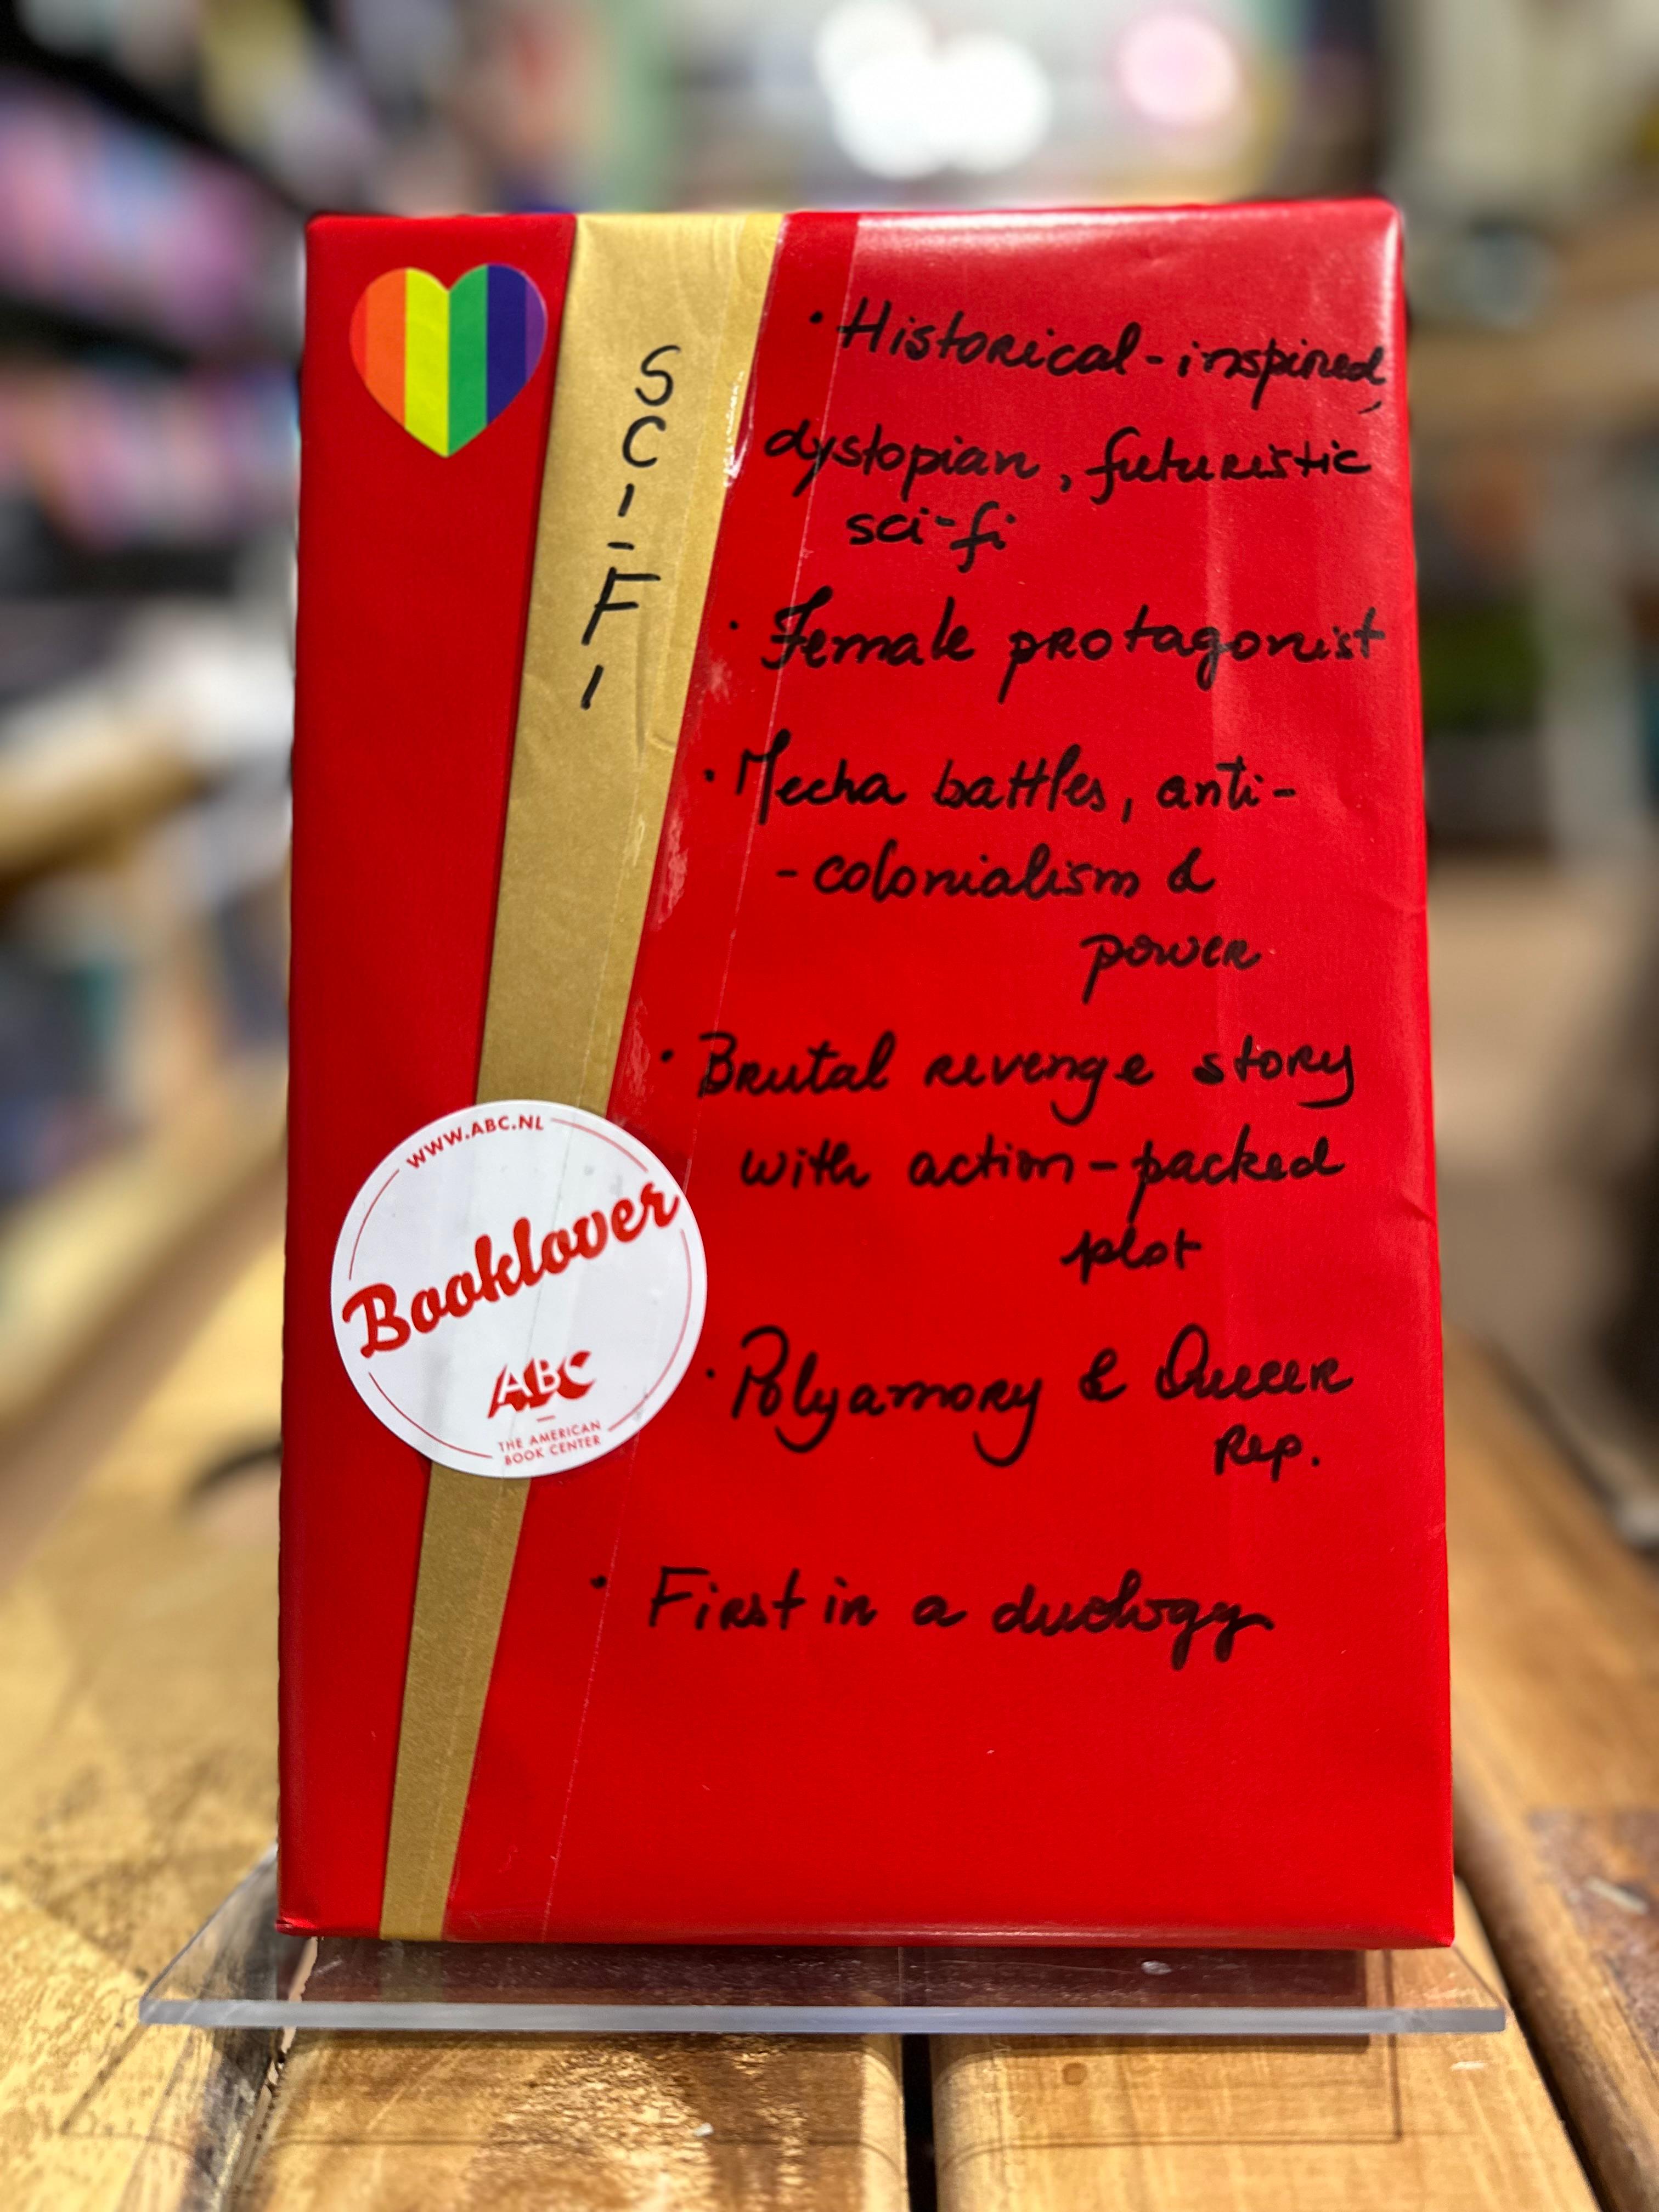 SCI-FI
• Historical-inspired,
dystopian, futuristic
sci-fi
• Female protagonist
• Mecha battles, anti-
-colonialism &
power
• Brutal revenge story
with action-packed
plot
• Polyamory & Queer
Rep.
• First in a duology
WWW.ABC.NL
Booklover
ABC
THE AMERICAN
BOOK CENTER